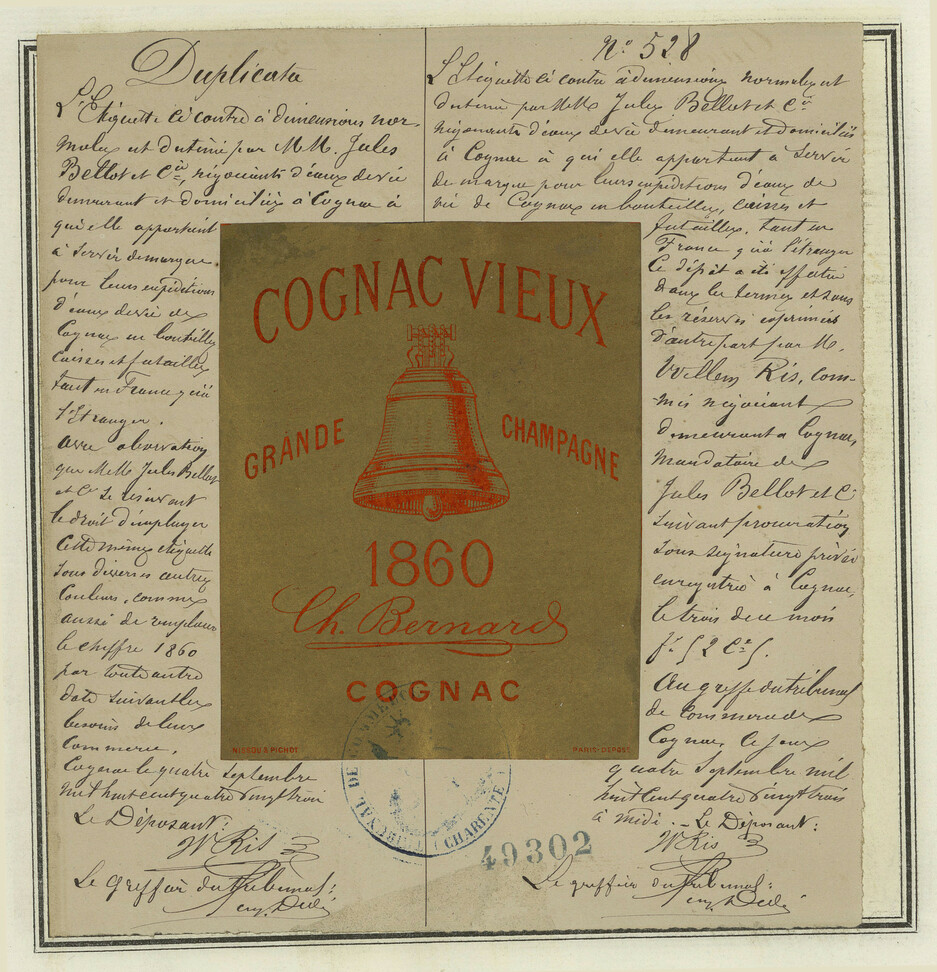 Duplicata
L'Etiquette ci contre a dimensions nor-
males est destinée par MM. Jules
Bellot et Cie, négociants d'eaux de vie
demeurant et domiciliés à Cognac à
qui elle appartient
à servir de marque
pour leurs expéditions
d'eaux de vie de
Cognac en bouteilles
caisses et futailles
tant en France qu'à
l'Etranger.
avec observation
que MM. Jules Bellot
et Cie se réservent
le droit d'employer
cette même etiquette
sous diverses autres
couleurs, comme
aussi de remplacer
le chiffre 1860
par toute autre
date suivant les
besoins de leur
commerce.
Cognac le quatre Septembre
mil huit cent quatre vingt trois
Le Déposant:
W Ris
Le greffier du Tribunal:
No 528
L'Etiquette ci contre a dimensions normales est
destinée par MM. Jules Bellot et Cie
négociants d'eaux de vie demeurant et domiciliés
à Cognac à qui elle appartient à servir
de marque pour leurs expéditions d'eaux de
vie de Cognac en bouteilles, caisses et
futailles, tant en
France qu'à l'étranger
Ce dépôt a été effectué
dans les termes et sous
les réserves exprimées
d'autre part par M.
Willem Ris, com-
mis négociant
demeurant à Cognac,
mandataire de
Jules Bellot et Cie
suivant procuration
sous seignature privée
enregistrée à Cognac,
le trois de ce mois
Au greffe du tribunal
de Commerce de
Cognac, ce jour
quatre Septembre mil
huit cent quatre vingt trois
à midi. - Le Déposant:
W Ris
Le greffier du Tribunal:
COGNAC VIEUX
GRANDE CHAMPAGNE
1860
Ch. Bernard
COGNAC
NISSOU & PICHOT
PARIS-DÉPOSÉ
(CHARENTE)
49302